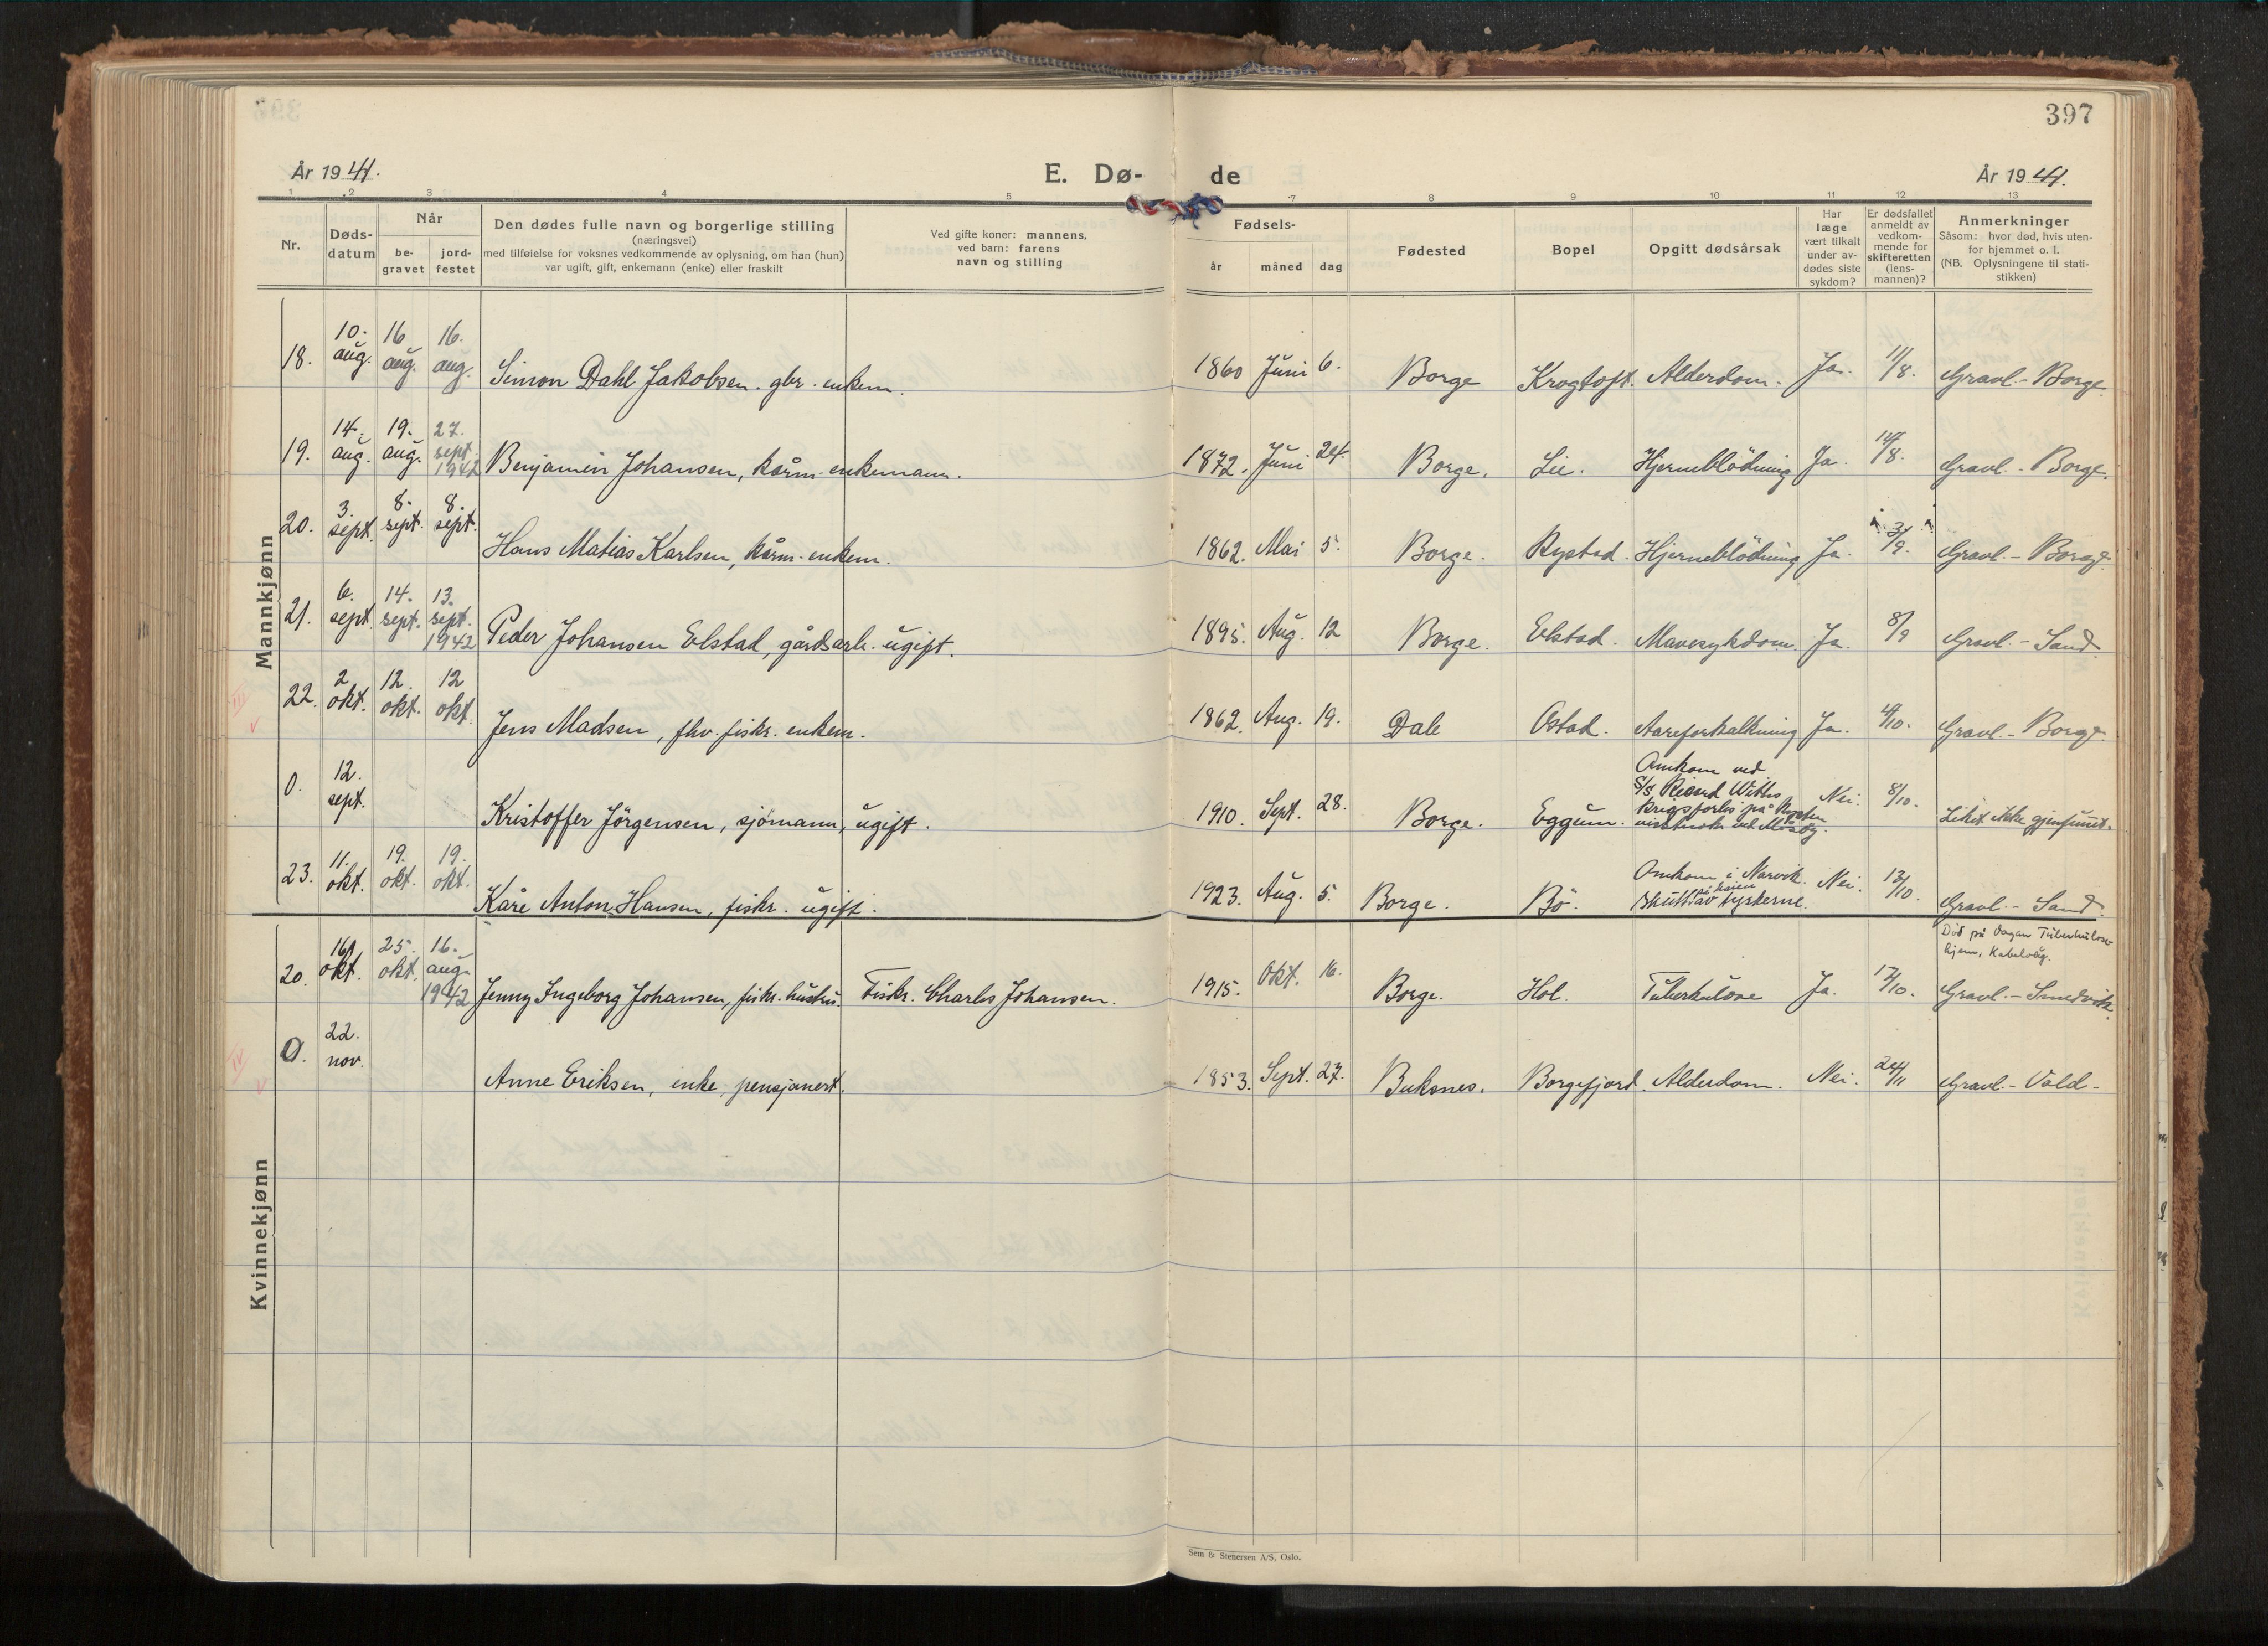 397
År 1941.
E. Dø-
de
År 1941.
1 2 3 4 5 7 8 9 10 11 12 13
Nr.
Døds-
datum
Når
be-
gravet
jord-
festet
Den dødes fulle navn og borgerlige stilling
(næringsvei)
med tilføielse for voksnes vedkommende av oplysning, om han (hun)
var ugift, gift, enkemann (enke) eller fraskilt
Ved gifte koner: mannens,
ved barn: farens
navn og stilling
Fødsels-
år måned dag
Fødested
Bopel
Opgitt dødsårsak
Har
læge
vært tilkalt
under av-
dødes siste
sykdom?
Er dødsfallet
anmeldt av
vedkom-
mende for
skifteretten
(lens-
mannen)?
Anmerkninger
Såsom: hvor død, hvis uten-
for hjemmet o. l.
(NB. Oplysningene til stati-
stikken)
Mannkjønn
18. 10. aug. 16 aug. 16. aug. Simon Dahl Jakobsen. gbr. enkem. 1860 Juni 6. Borge Krogtoft. Alderdom. Ja. 11/8. Gravl. - Borge.
19. 14. aug. 19. aug. 27. sept 1942 Benjamin Johansen, kårm. enkemann. 1872. Juni 24. Borge. Lie. Hjerneblödning Ja. 14/8. Gravl. - Borge.
20. 3. sept. 8. sept. 8. sept. Hans Matias Karlsen, kårm. enkem. 1862. Mai 5. Borge. Rystad. Hjerneblödning Ja. 3/9. Gravl. - Borge.
21. 6. sept. 14. sept. 13. sept. 1942 Peder Johansen Elstad, gårdsarb. ugift. 1895. Aug. 12 Borge. Elstad. Mavesykdom. Ja. 8/9 Gravl. - Sand.
22. 2 okt. 12. okt. 12 okt. Jens Madsen, fhv. fiskr. enkem. 1862. Aug. 19. Dale Ostad. Aareforkalkning Ja. 4/10. Gravl. - Borge.
0. 12. sept. Kristoffer Jörgensen, sjömann, ugift. 1910. Sept. 28. Borge. Eggum.
Omkom ved
S/S Richard Withs
krigsforlis på
ved
Nei. 8/10. Liket ikke gjenfunnet.
23. 11. okt. 19. okt. 19. okt. Kåre Anton Hansen, fiskr. ugift. 1923. Aug. 5. Borge. Bö.
Omkom i Narvik.
på kaien
skutt av tyskerne.
Nei. 13/10. Gravl. - Sand.
Kvinnekjønn
20. 16 okt. 25. okt. 16. aug. 1942 Jenny Ingeborg Johansen, fiskr. hustru. Fiskr. Charles Johansen. 1915. Okt. 16. Borge. Hol. Tuberkulose Ja. 17/10.
Död på Vågan Tuberkulose-
hjem, Kabelvåg.
Gravl. - Smedvik.
0. 22. nov. Anne Eriksen, enke, pensjonert. 1853. Sept. 27. Buksnes. Borgefjord. Alderdom. Nei. 24/11 Gravl. - Vold -
Sem & Stenersen A/S, Oslo.